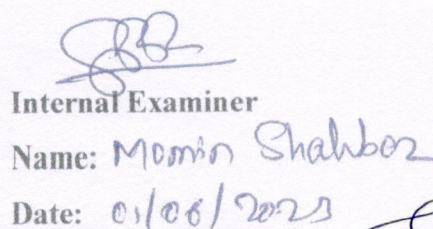 Internal Examiner
Name: Momin Shahbaz
Date: 01/06/2023